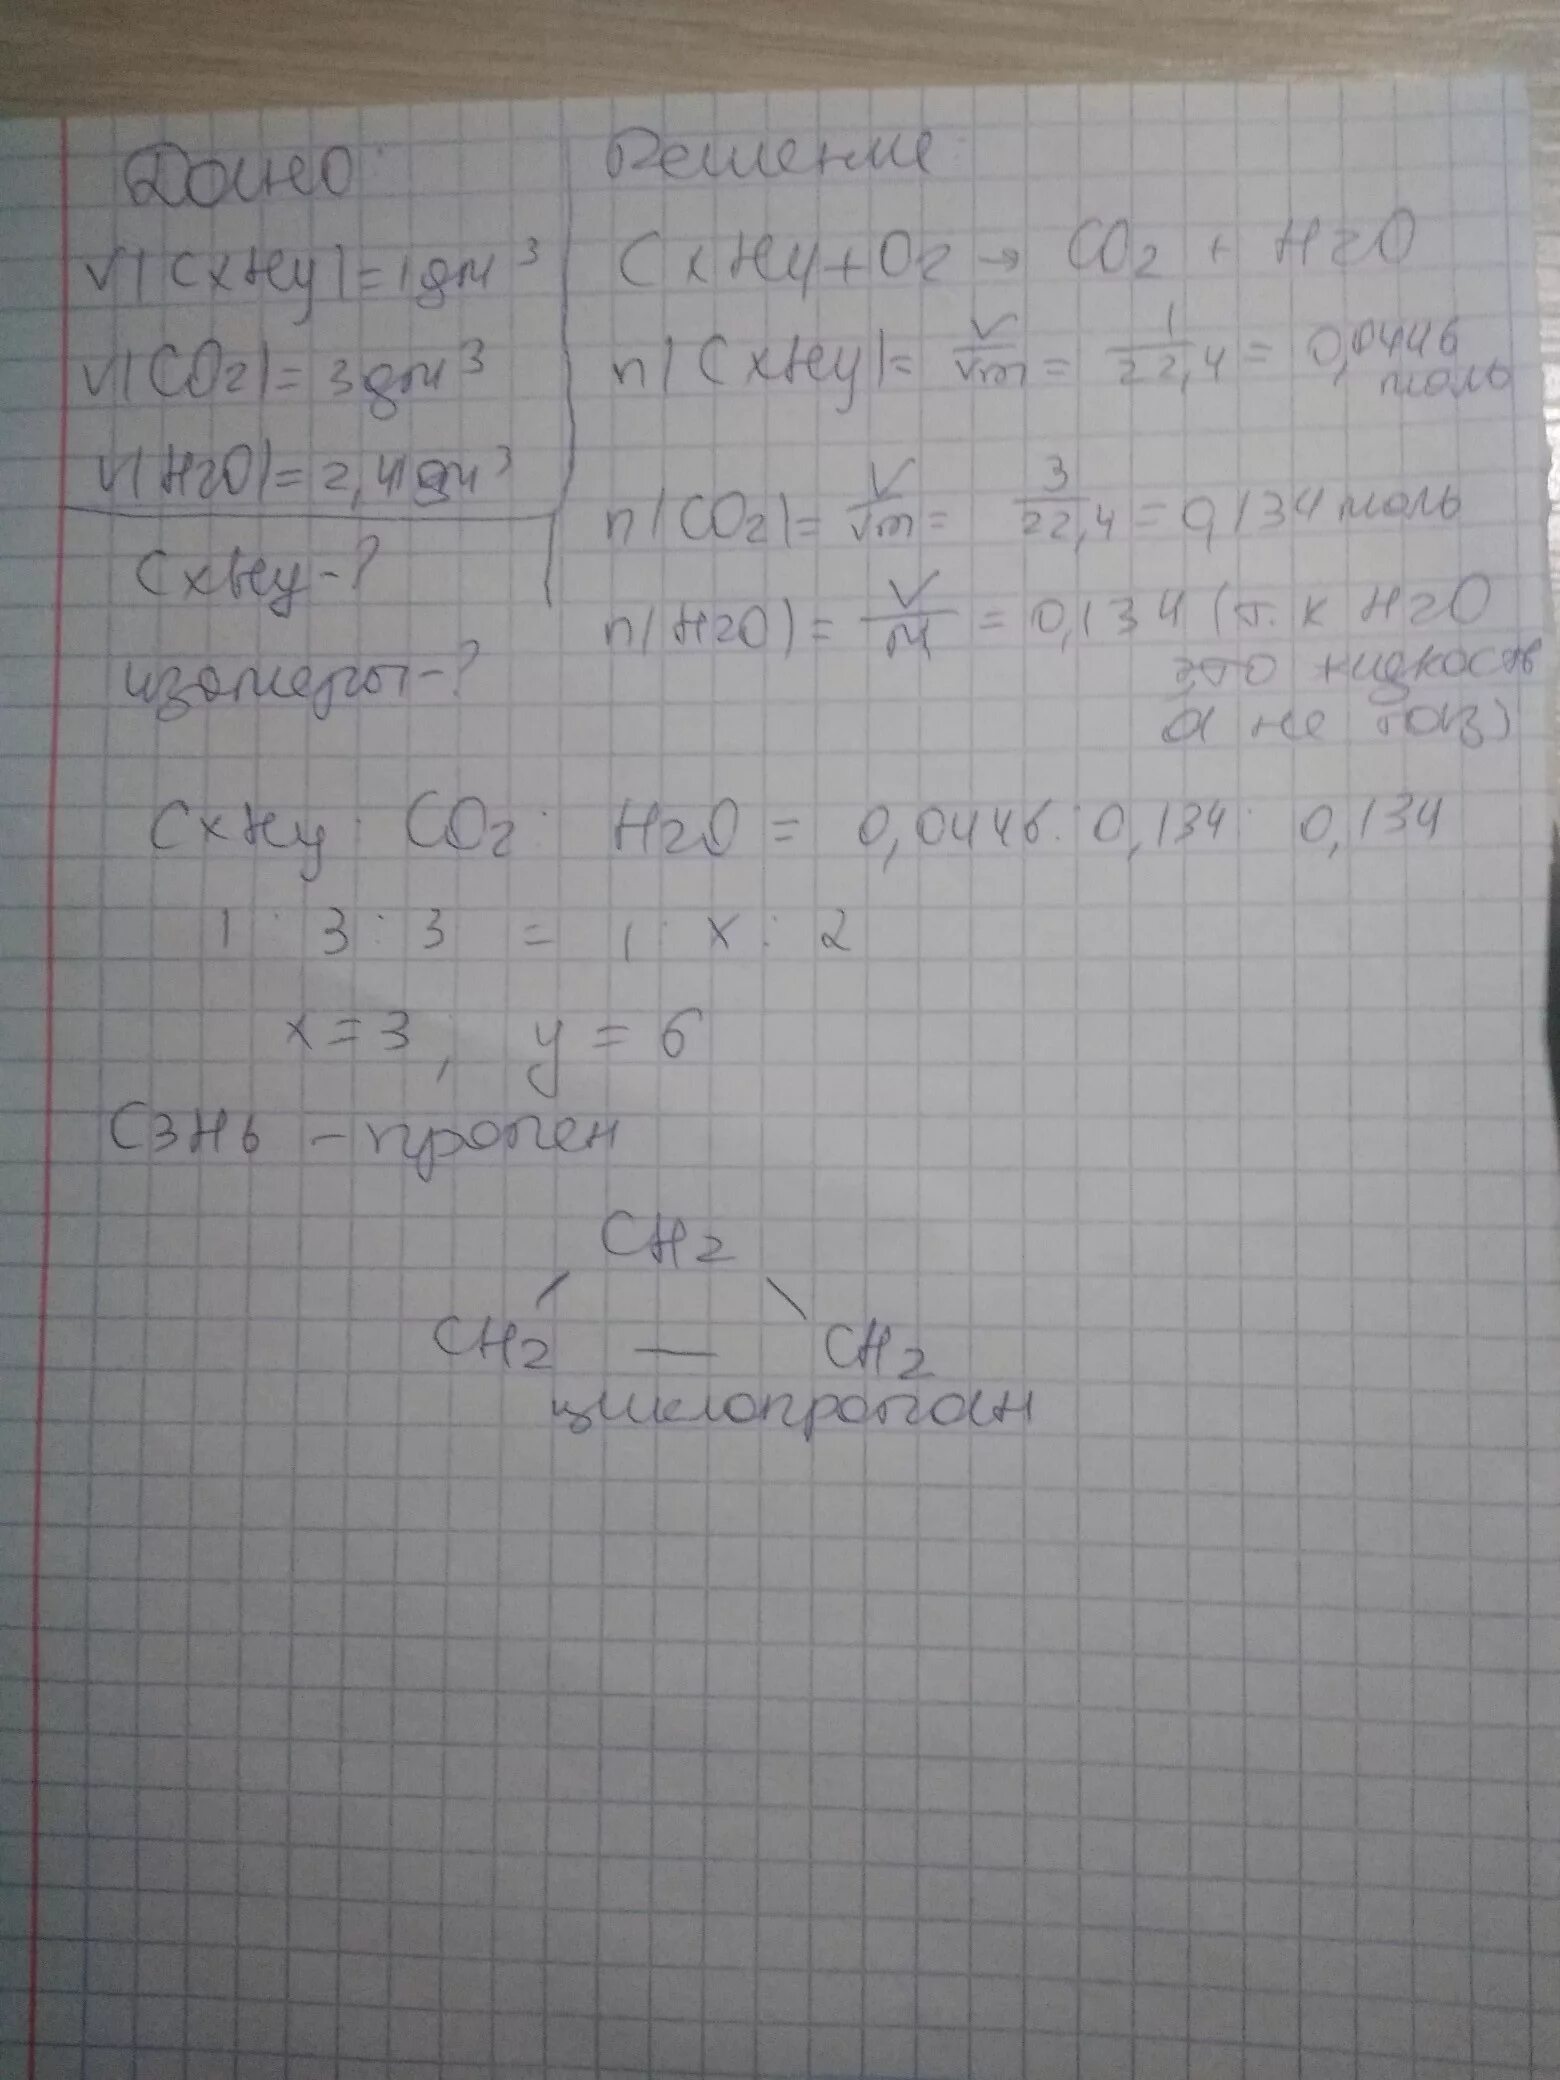 Дано:
V(CxHy)=1дм³
V(CO2)=3дм³
V(H2O)=2,41дм³
CxHy-?
изомеры-?
Решение:
CxHy+O2→ CO2 + H2O
n(CxHy)= V/Vm = 1/22,4 = 0,0446 моль
n(CO2)= V/Vm = 3/22,4 = 0,134 моль
n(H2O) = V/M = 0,134 (т.к H2O
это жидкость
а не газ)
CxHy : CO2 : H2O = 0,0446 : 0,134 : 0,134
1 : 3 : 3 = 1 : x : 2
x=3, y = 6
C3H6 – пропен
CH2
CH2 — CH2
циклопропан